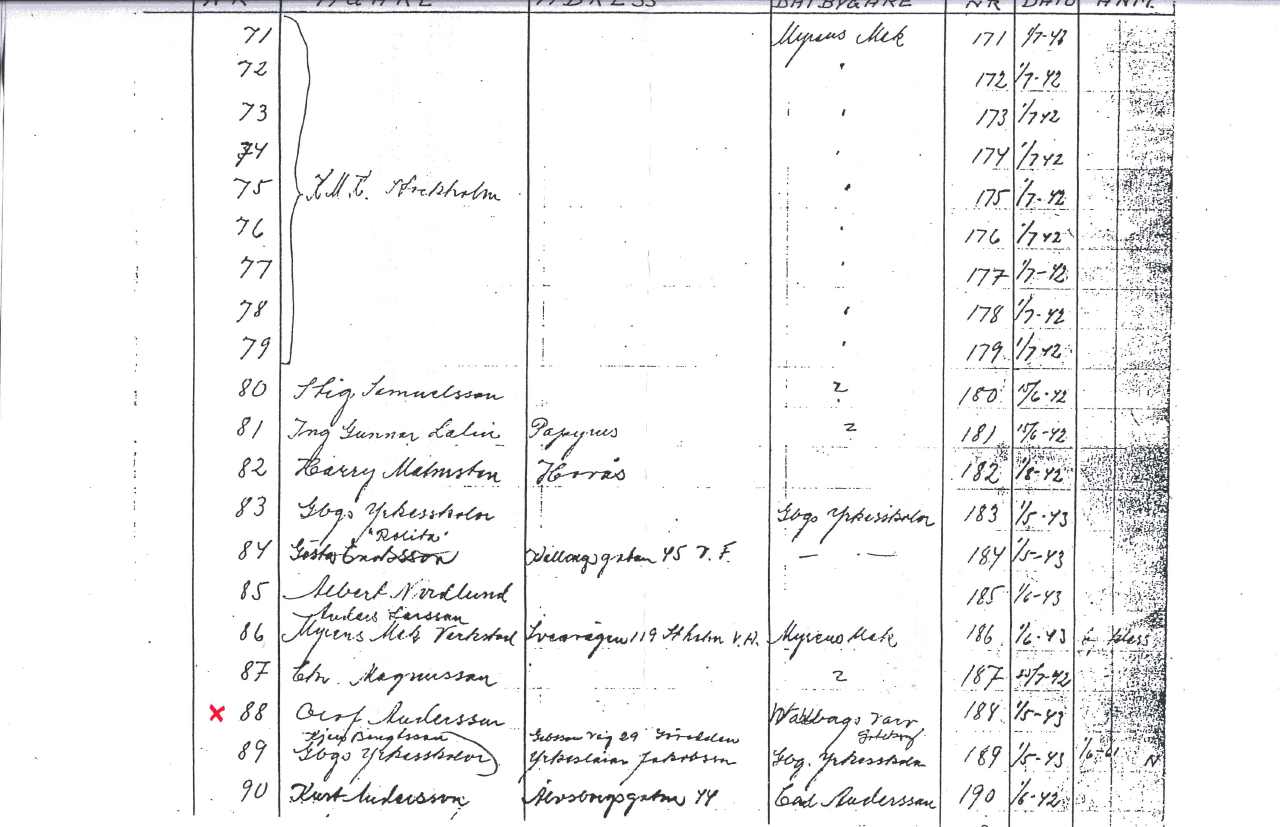 NR ÄGARE ADRESS BÅTBYGARE NR DATO ANM.
71 Myrens Mek 171 1/7-43
72 " 172 1/7-42
73 " 173 1/7 42
74 " 174 1/7 42
75 K.M.K. Stockholm " 175 1/7-42
76 " 176 1/7 42
77 " 177 1/7-42
78 " 178 1/7-42
79 " 179 1/7 42
80 Stig Samuelsson 180 15/6-42
81 Ing Gunnar Lalin Papyrus 181 15/6-42
82 Harry Malmsten Hovås 182 1/8-42
83 Gbgs Yrkesskolor Gbgs Yrkesskolor 183 1/5-43
"Rolita"
84 Gösta 45 V. F. — — 184 1/5-43
85 Albert Nordlund 185 1/6-43
Anders Larsson
86 Myrens Mek Verkstad Sveavägen 119 Stholm V.A. Myrens Mek 186 1/6-43
87 Magnusson 187 /7-42
x 88 Olof Andersson Varv 184 1/5-43
Bengtsson 29
89 Gbgs Yrkesskolor Yrkeslärare Jakobson Gbg. Yrkesskola 189 1/5-43 N
90 Kurt Andersson Älvsborgsgatan 44 Andersson 190 1/6-42